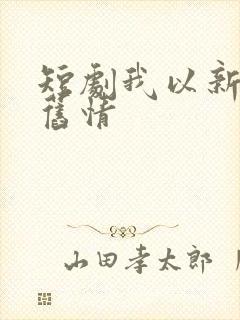 短劇我以新
舊情
山田孝太郎